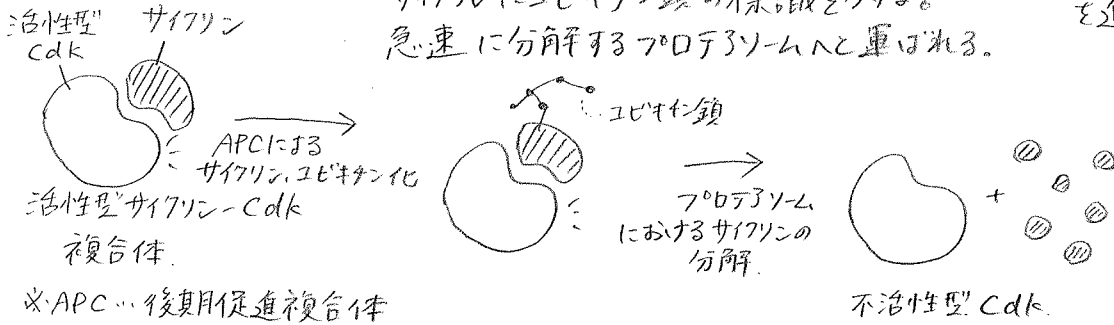 サイクリンにユビキチン鎖の標識をつける。
を進
急速に分解するプロテアソームへと運ばれる。
活性型
Cdk
サイクリン
APCによる
サイクリン、ユビキチン化
活性型サイクリン-Cdk
複合体.
※APC…後期促進複合体
ユビキチン鎖
プロテアソーム
におけるサイクリンの
分解.
+
不活性型 Cdk.